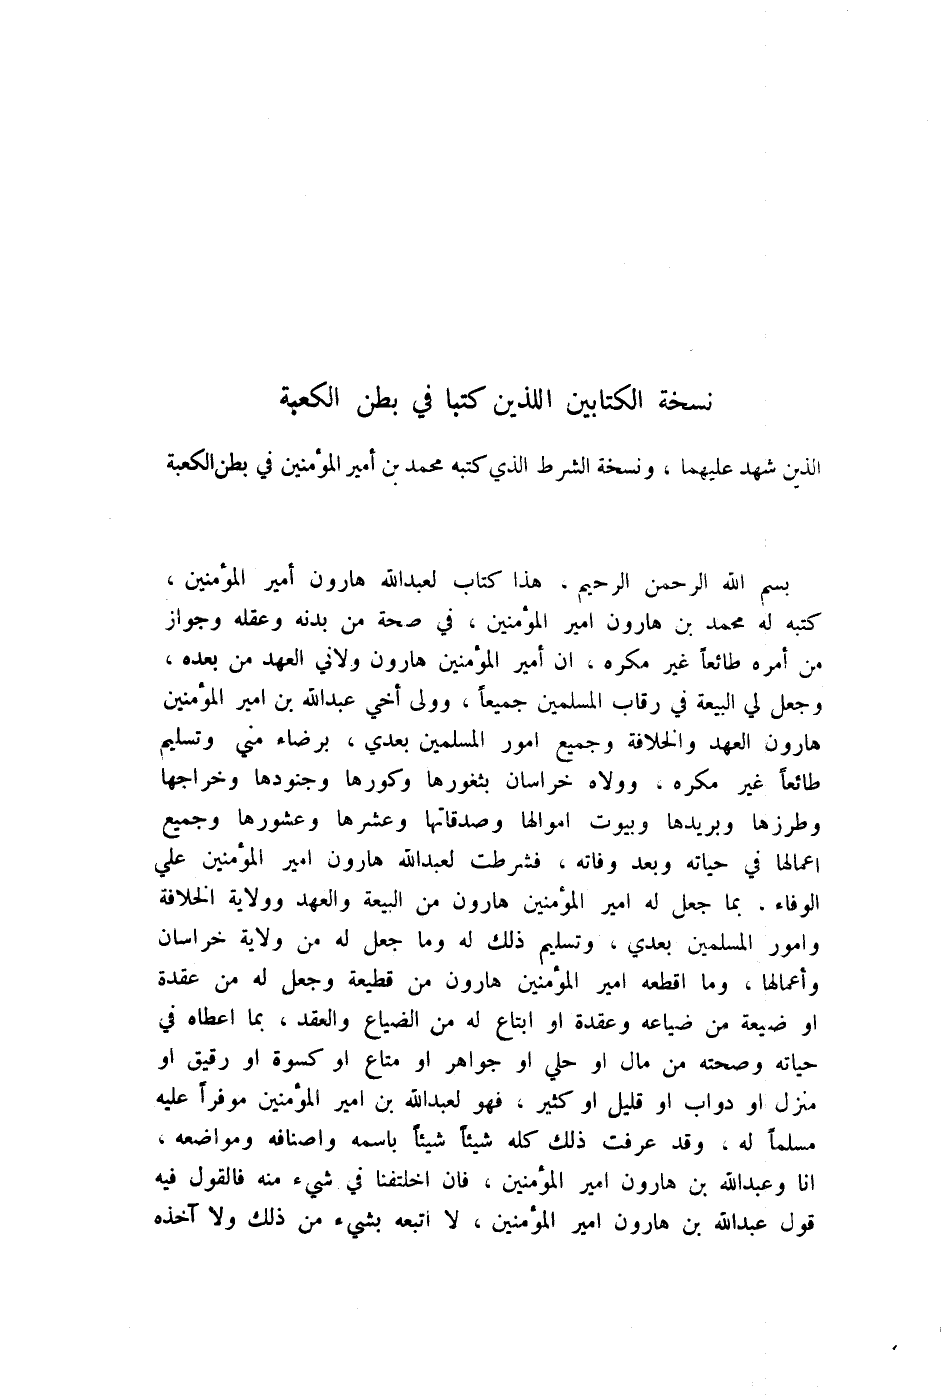 نسخة الكتابين اللذين كتبا في بطن الكعبة
الذين شهد عليهما ، ونسخة الشرط الذي كتبه محمد بن أمير المؤمنين في بطن الكعبة
بسم الله الرحمن الرحيم . هذا كتاب لعبدالله هارون أمير المؤمنين ،
كتبه له محمد بن هارون امير المؤمنين ، في صحة من بدنه وعقله وجواز
من أمره طائعاً غير مكره ، ان أمير المؤمنين هارون ولاني العهد من بعده ،
وجعل لي البيعة في رقاب المسلمين جميعاً ، وولى أخي عبدالله بن امير المؤمنين
هارون العهد والخلافة وجميع امور المسلمين بعدي ، برضاء مني وتسليم
طائعاً غير مكره ، وولاه خراسان بثغورها وكورها وجنودها وخراجها
وطرزها وبريدها وبيوت اموالها وصدقاتها وعشرها وعشورها وجميع
اعمالها في حياته وبعد وفاته ، فشرطت لعبدالله هارون امير المؤمنين علي
الوفاء . بما جعل له امير المؤمنين هارون من البيعة والعهد وولاية الخلافة
وامور المسلمين بعدي ، وتسليم ذلك له وما جعل له من ولاية خراسان
وأعمالها ، وما اقطعه امير المؤمنين هارون من قطيعة وجعل له من عقدة
او ضيعة من ضياعه وعقدة او ابتاع له من الضياع والعقد ، بما اعطاه في
حياته وصحته من مال او حلي او جواهر او متاع او كسوة او رقيق او
منزل او دواب او قليل او كثير ، فهو لعبدالله بن امير المؤمنين موفراً عليه
مسلماً له ، وقد عرفت ذلك كله شيئاً شيئاً باسمه واصنافه ومواضعه ،
انا وعبدالله بن هارون امير المؤمنين ، فان اختلفنا في شيء منه فالقول فيه
قول عبدالله بن هارون امير المؤمنين ، لا اتبعه بشيء من ذلك ولا آخذه